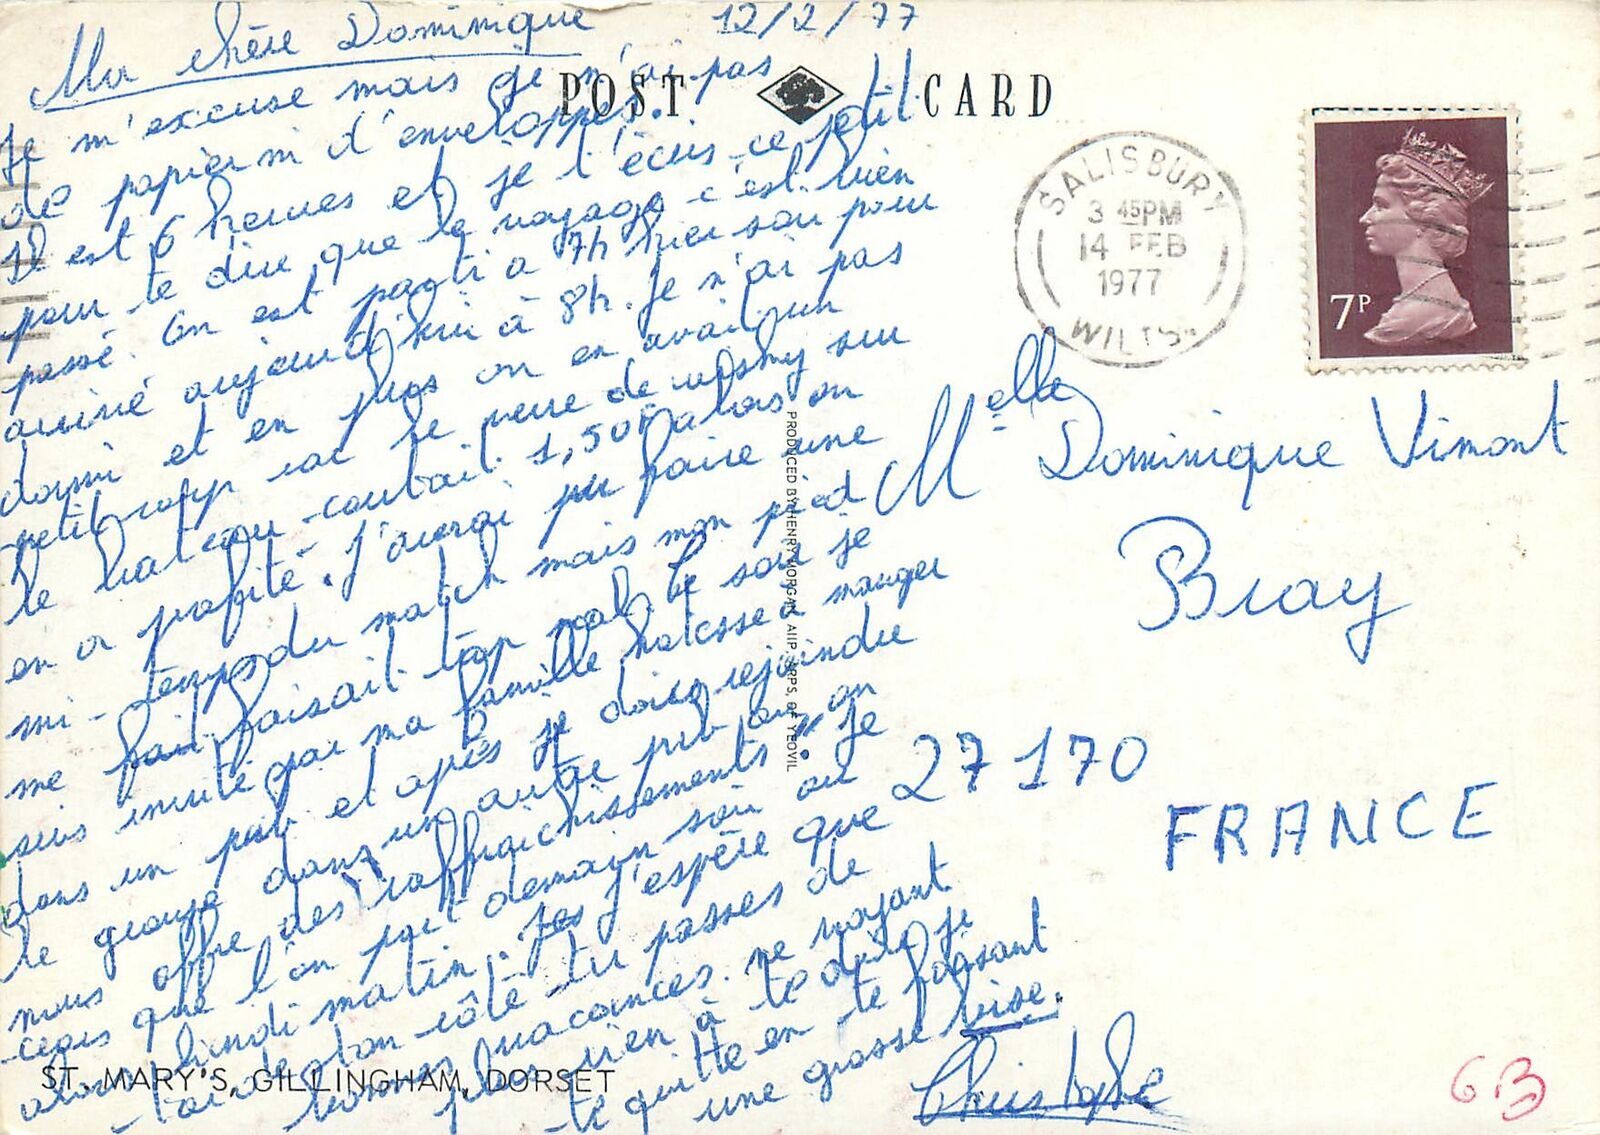 Ma chère Dominique 12/2/77
POST CARD
Je m'excuse mais je n'ai pas
de papier ni d'enveloppes.
Il est 6 heures et je t'écris ce petit
pour te dire que le voyage c'est bien
passé. On est parti a 7h hier soir pour
arrivé aujourd'hui à 8h. Je n'ai pas
dormi et en plus on en avait un
petit coup car le verre de wisky sur
le bateau coutait 1,50F alors on
en a profité. J'aurai pu faire une
mi-temps du match mais mon pied
me faisait trop mal. Ce soir je
suis invité par ma famille a manger
dans un pub et après je dois rejoindre
le groupe dans un autre pub où on
nous offre des "raffraichissements" Je
crois que l'on part demain soir ou
lundi matin. J'espère que
de ton côté tu passes de
bonnes vacances. ne voyant
plus rien à te dire je
te quitte en te faisant
une grosse bise.
Christophe
ST. MARY'S, GILLINGHAM, DORSET
PRODUCED BY HENRY MORGAN, AIIP, ARPS, OF YEOVIL
SALISBURY
3 45PM
14 FEB
1977
WILTS.
7P
Melle Dominique Vimont
Bray
27170
FRANCE
6B